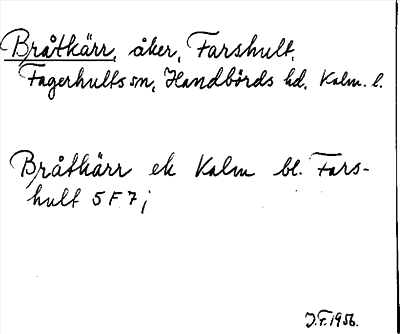 Bråtkärr, åker, Farshult,
Fagerhults sn, Handbörds hd, Kalm. l.
Bråtkärr ek Kalm bl. Fars-
hult 5 F 7 j
J.F. 1956.